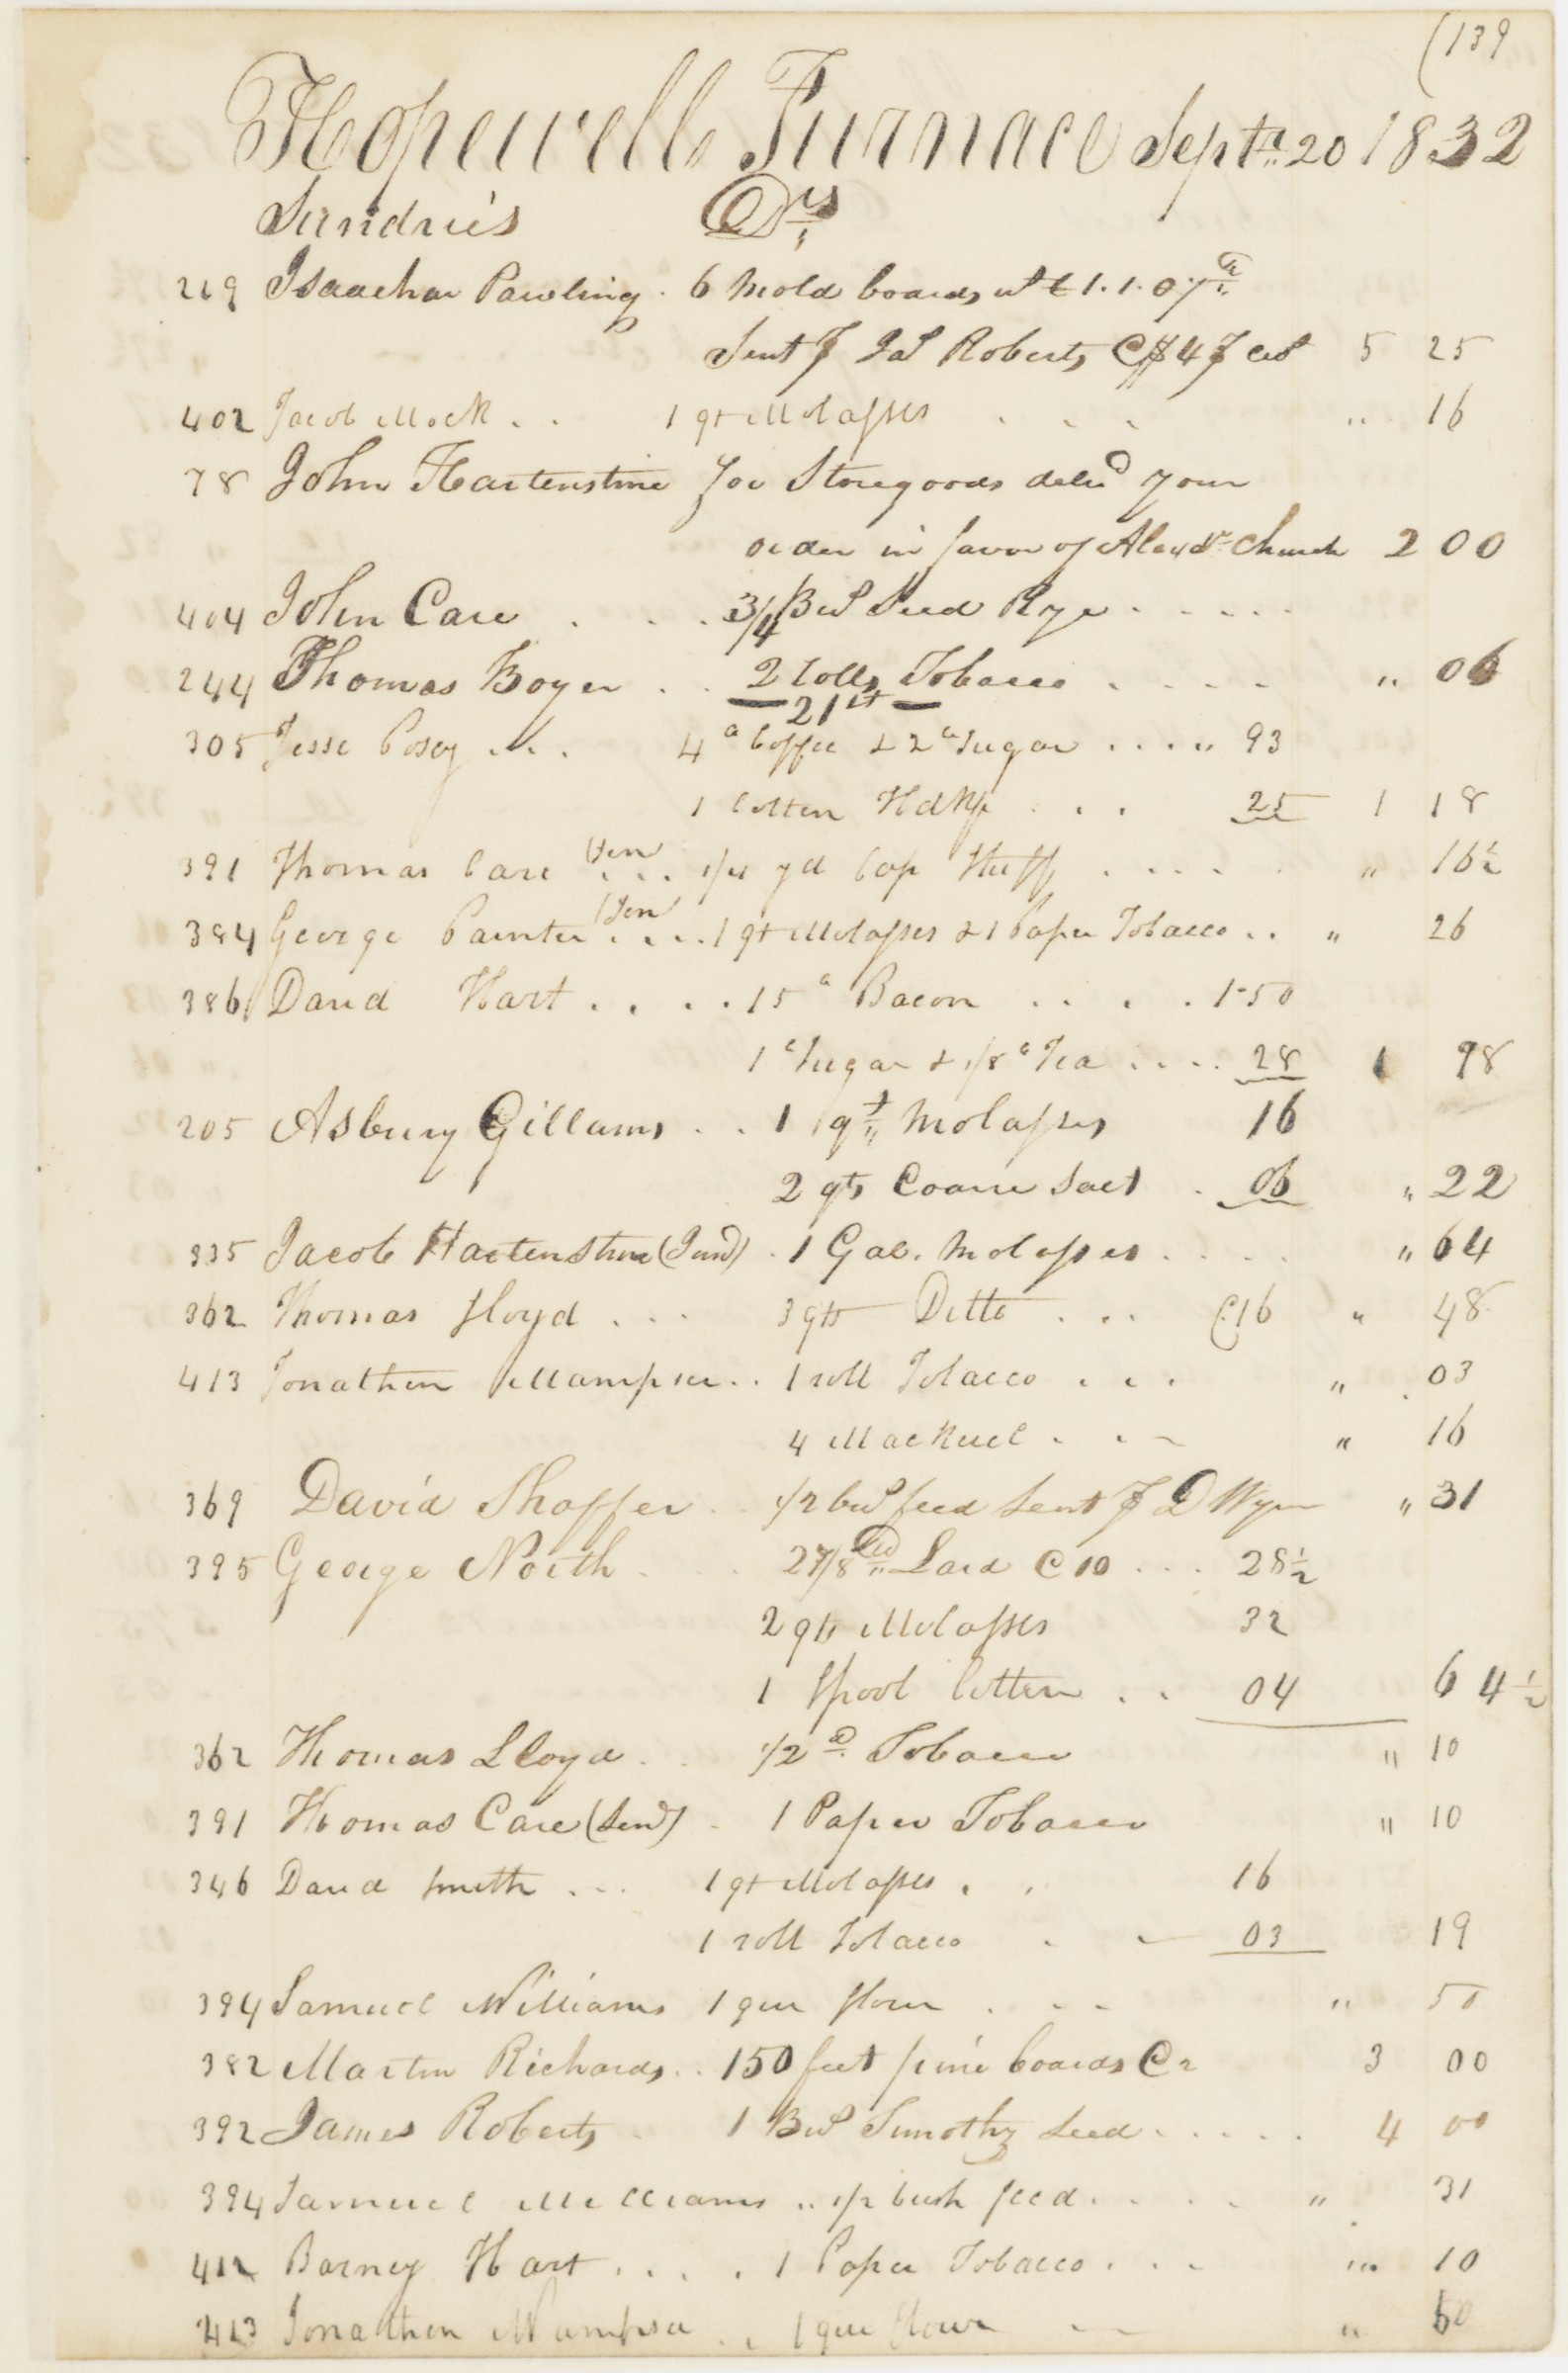 (139
Hopewell Furnace Septr. 20 1832
Sundries Drs
269 Isaachar Pawling . 6 Mold boards wt 1. 1. 07
Sent Jas Roberts @ $4 5 25
402 Jacob Mock . . 1 qt Molasses . . . " 16
78 John Hartenstine for Storegoods delid your
order in favor of Alexdr Church 2 00
404 John Care . . . 3/4 Bus Seed Rye . . . . .
244 Thomas Boyer . . 2 rolls Tobacco . . . . " 06
21st
305 Jesse Posey . . . 4 " Coffee & 2 " Sugar . . . . " 93
1 Cotten Hdkf . . . 25 1 18
391 Thomas Care (Sen) . . . 1/4 yd Cap Stuff . . . . . " 16½
384 George Painter (Sen) . . . . 1 qt Molasses & 1 Paper Tobacco . . " 26
386 David Hart . . . . 15 " Bacon . . . . 1.50
1 " Sugar & 1/8 " Tea . . . . 28 1 78
205 Asbury Gillams . . 1 qt Molasses 16
2 qts Coarse Salt . 06 " 22
335 Jacob Hartenstine (Jund) . 1 Gal. Molasses . . . . " 64
362 Thomas Lloyd . . . 3 qts Ditto . . . @16 " 48
413 Jonathan Mampser . . 1 roll Tobacco . . . " 03
4 Mackerel . . . " 16
369 David Shaffer . 1/2 bus feed sent D Wynn " 31
395 George North . . 2 7/8 lb Lard @ 10 . . . 28½
2 qts Molasses 32
1 Spool Cotten . . 04 64½
362 Thomas Lloyd . . 1/2 lb. Tobacco " 10
391 Thomas Care (Send) . 1 Paper Tobacco " 10
346 David Smith . . . 1 qt Molasses . . 16
1 roll Tobacco . . 03 19
394 Samuel Williams 1 qur flour . . . " 50
382 Martin Richards . . 150 feet pine boards @ 2 3 00
392 James Roberts . 1 Bus Timothy Seed . . . . . 4 00
394 Samuel Williams . . 1/2 bush feed . . . . " 31
412 Barney Hart . . . . 1 Paper Tobacco . . . " 10
413 Jonathan Mampser . . 1 qur flour . . " 50